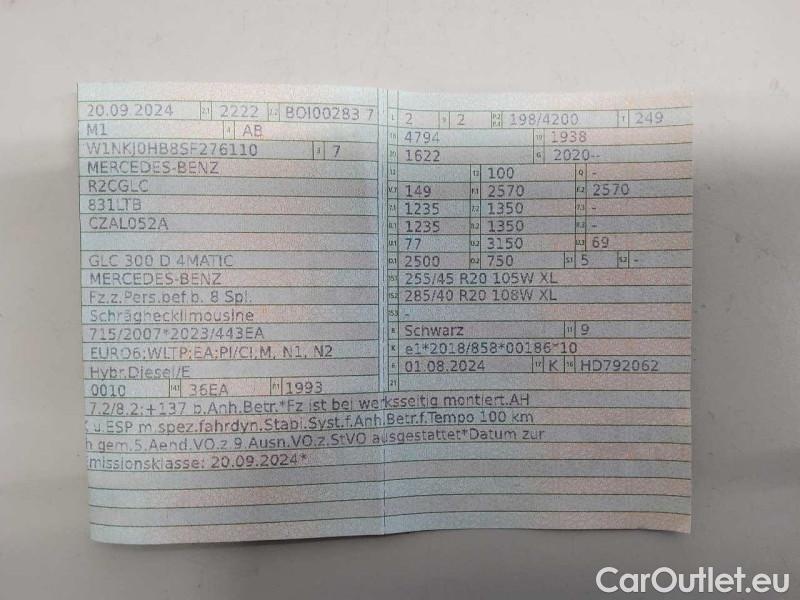 20.09.2024 2.1 2222 2.2 BOI00283 7
M1 4 AB
W1NKJ0HB8SF276110 3 7
MERCEDES-BENZ
R2CGLC
831LTB
CZAL052A
GLC 300 D 4MATIC
MERCEDES-BENZ
Fz.z.Pers.bef b. 8 Spl.
Schräghecklimousine
715/2007*2023/443EA
EURO6;WLTP;EA;PI/CI,M, N1, N2
Hybr.Diesel/E
0010 14.1 36EA P.1 1993
L 2 9 2 P.2 P.4 198/4200 T 249
18 4794 19 1938
20 1622 G 2020--
12 - 13 100 Q -
V.7 149 F.1 2570 F.2 2570
7.1 1235 7.2 1350 7.3 -
8.1 1235 8.2 1350 8.3 -
U.1 77 U.2 3150 U.3 69
O.1 2500 O.2 750 S.1 5 S.2 -
15.1 255/45 R20 105W XL
15.2 285/40 R20 108W XL
15.3 -
R Schwarz 11 9
K e1*2018/858*00186*10
6 01.08.2024 17 K 16 HD792062
21
7.2/8.2:+137 b.Anh.Betr.*Fz ist bei werksseitig montiert.AH
u.ESP m.spez.fahrdyn.Stabi.Syst.f.Anh.Betr.f.Tempo 100 km
h gem.5.Aend.VO.z.9.Ausn.VO.z.StVO ausgestattet*Datum zur
missionsklasse: 20.09.2024*
CarOutlet.eu